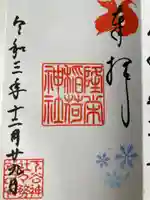 奉拝
隆栄
稲荷
神社
令和三年十二月廿九日
下谷神